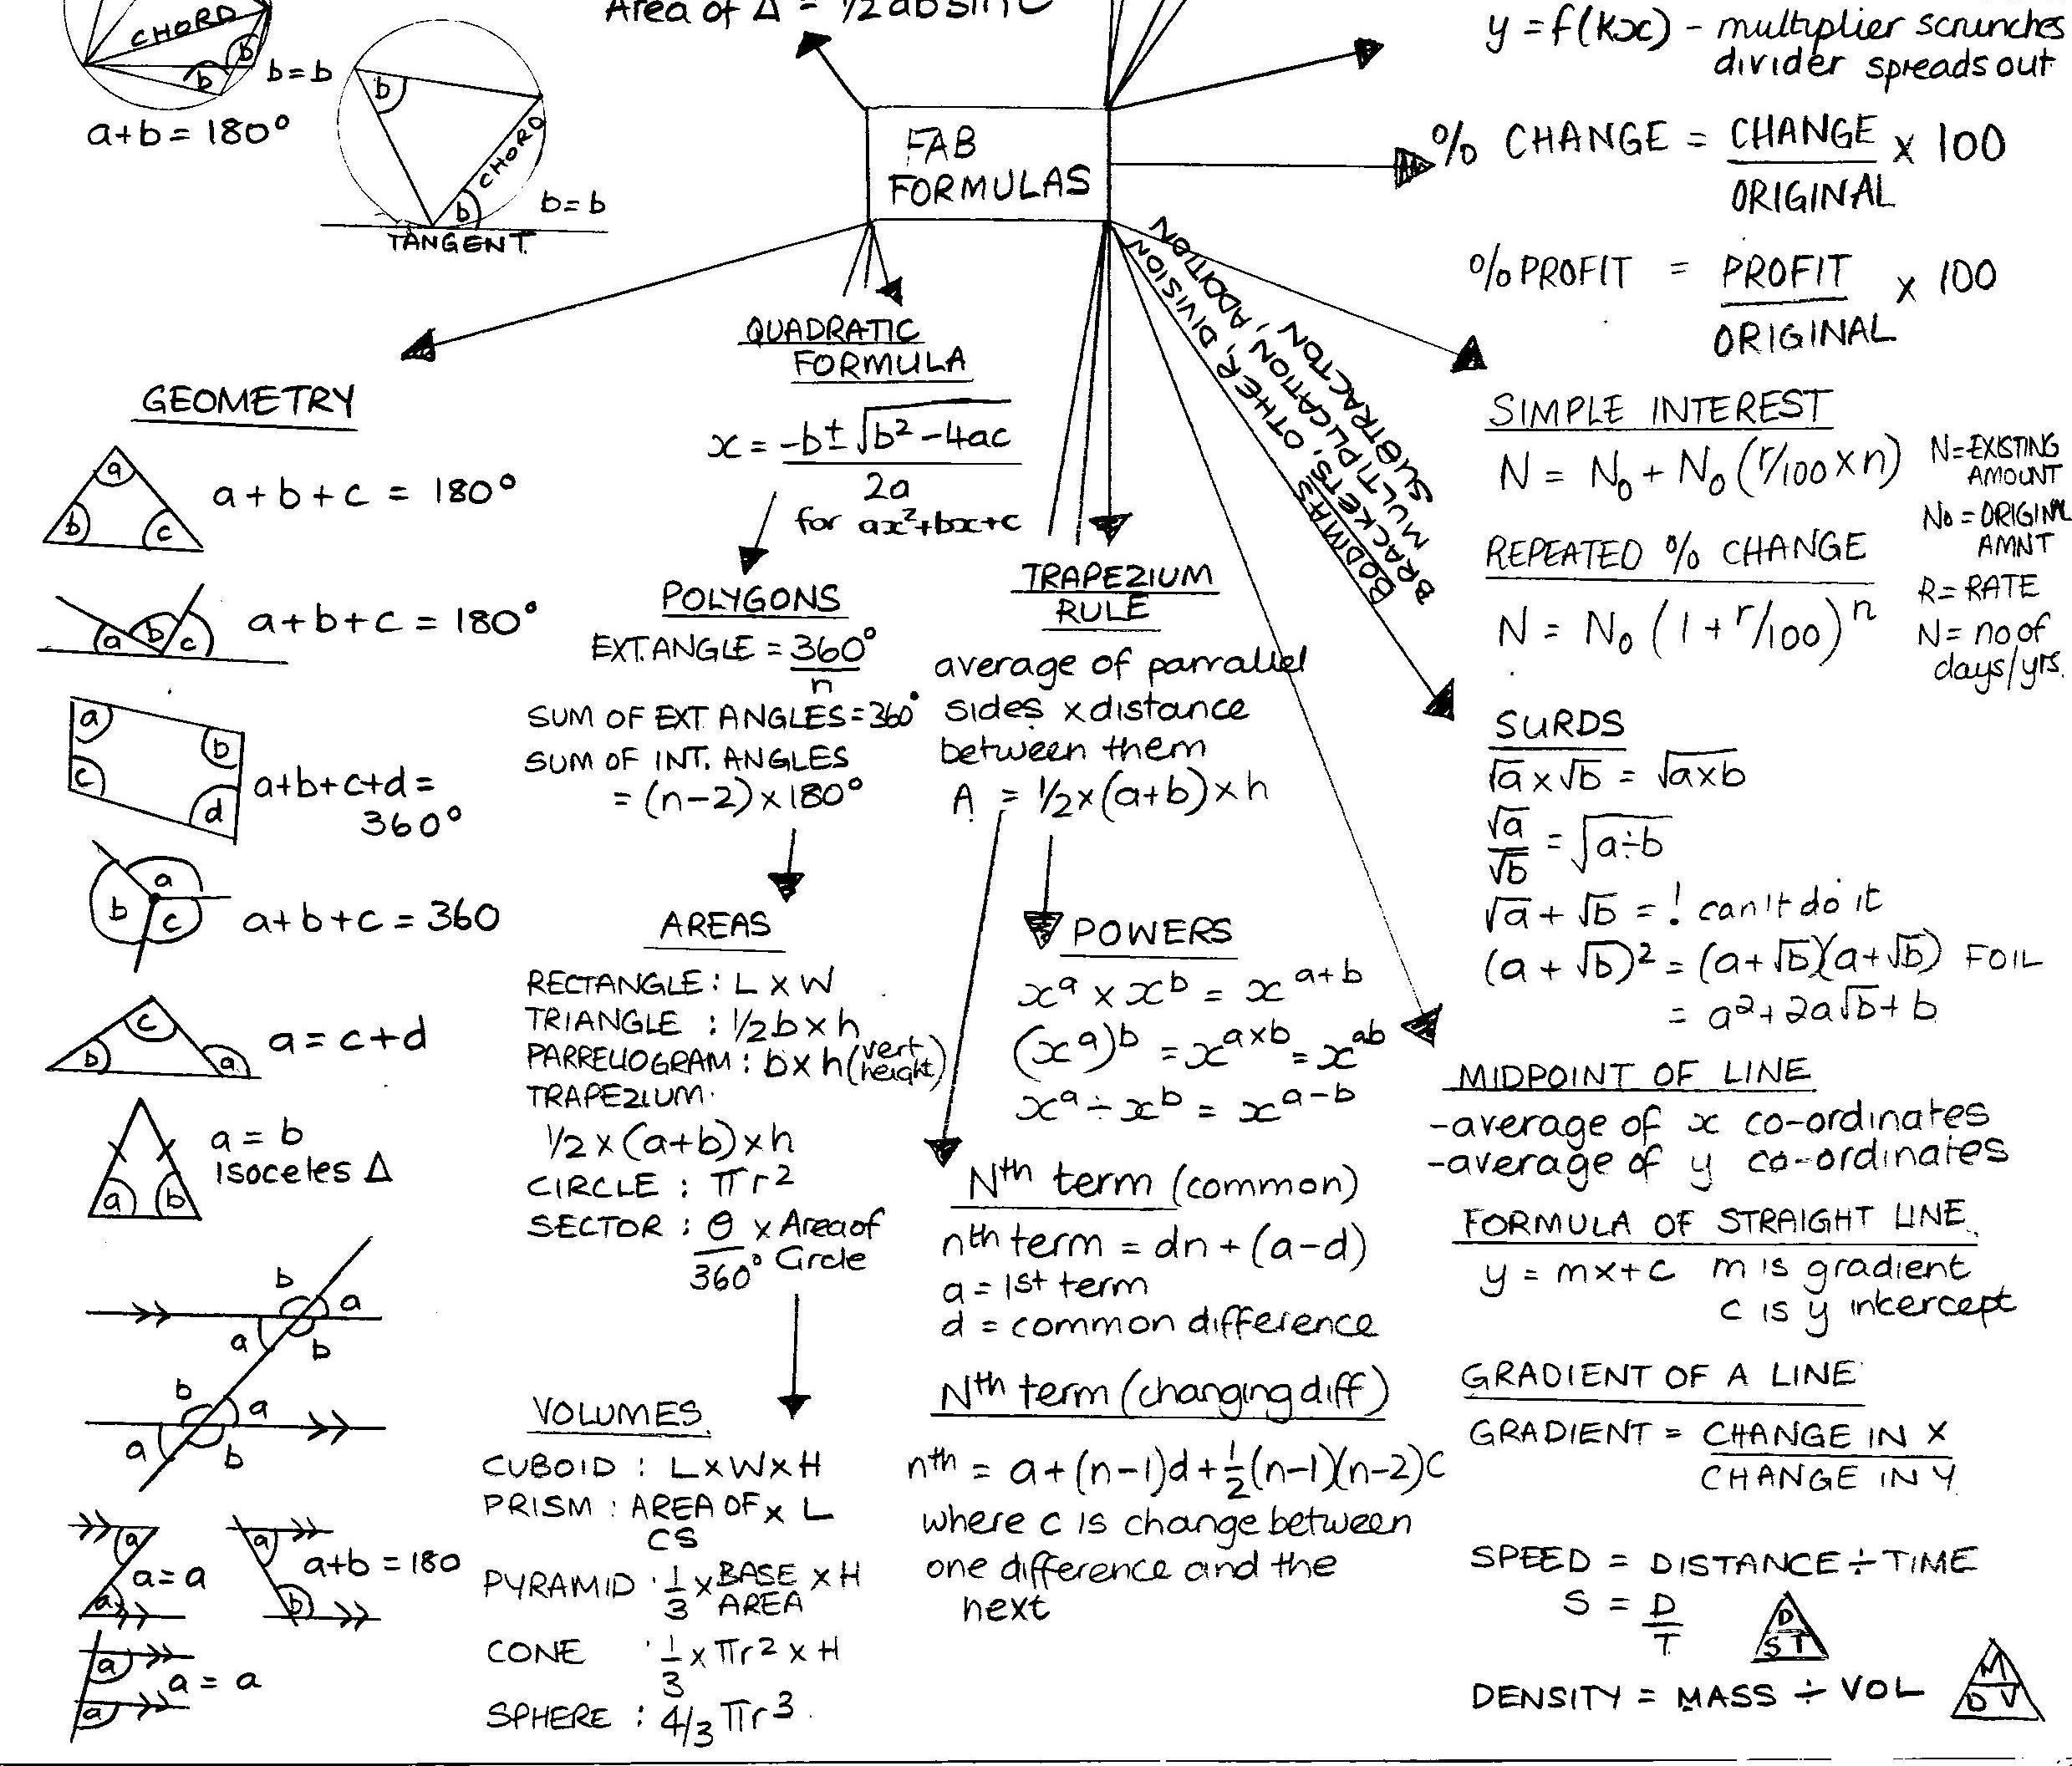 CHORD
b
b
b = b
a+b = 180°
b
CHORD
b
b = b
TANGENT
Area of Δ = 1/2 ab sin C
FAB
FORMULAS
y = f(kx) - multiplier scrunches
divider spreads out
% CHANGE = CHANGE x 100
ORIGINAL
% PROFIT = PROFIT x 100
ORIGINAL
BODMAS
BRACKETS, OTHER, DIVISION
MULTIPLICATION, ADDITION
SUBTRACTION
GEOMETRY
a
b
c
a + b + c = 180°
a
b
c
a + b + c = 180°
a
b
c
d
a+b+c+d =
360°
a
b
c
a + b + c = 360
c
b
a
a = c + d
a = b
isoceles Δ
a
b
b
a
a
b
b
a
a
b
a
a
a = a
a
b
a+b = 180
a
a
a = a
QUADRATIC
FORMULA
x = -b ± √b² - 4ac
2a
for ax²+bx+c
POLYGONS
EXT. ANGLE = 360°
n
SUM OF EXT ANGLES = 360°
SUM OF INT. ANGLES
= (n-2) x 180°
AREAS
RECTANGLE : L x W
TRIANGLE : 1/2 b x h
PARRELLOGRAM : b x h (vert height)
TRAPEZIUM
1/2 x (a+b) x h
CIRCLE : πr²
SECTOR : θ x Area of
360° Circle
VOLUMES
CUBOID : L x W x H
PRISM : AREA OF x L
CS
PYRAMID : 1/3 x BASE AREA x H
CONE : 1/3 x πr² x H
SPHERE : 4/3 πr³
TRAPEZIUM
RULE
average of parrallel
sides x distance
between them
A = 1/2 x (a+b) x h
POWERS
xᵃ x xᵇ = xᵃ⁺ᵇ
(xᵃ)ᵇ = xᵃˣᵇ = xᵃᵇ
xᵃ ÷ xᵇ = xᵃ⁻ᵇ
Nth term (common)
nth term = dn + (a-d)
a = 1st term
d = common difference
Nth term (changing diff)
nth = a + (n-1)d + 1/2(n-1)(n-2)c
where c is change between
one difference and the
next
SIMPLE INTEREST
N = N₀ + N₀ (r/100 x n)
REPEATED % CHANGE
N = N₀ (1 + r/100)ⁿ
N = EXISTING
AMOUNT
N₀ = ORIGINAL
AMNT
R = RATE
N = no of
days/yrs.
SURDS
√a x √b = √axb
√a/√b = √a÷b
√a + √b = ! can't do it
(a + √b)² = (a+√b)(a+√b) FOIL
= a² + 2a√b + b
MIDPOINT OF LINE
-average of x co-ordinates
-average of y co-ordinates
FORMULA OF STRAIGHT LINE
y = mx + c m is gradient
c is y intercept
GRADIENT OF A LINE
GRADIENT = CHANGE IN X
CHANGE IN Y
SPEED = DISTANCE ÷ TIME
S = D
T
D
S T
DENSITY = MASS ÷ VOL
M
D V